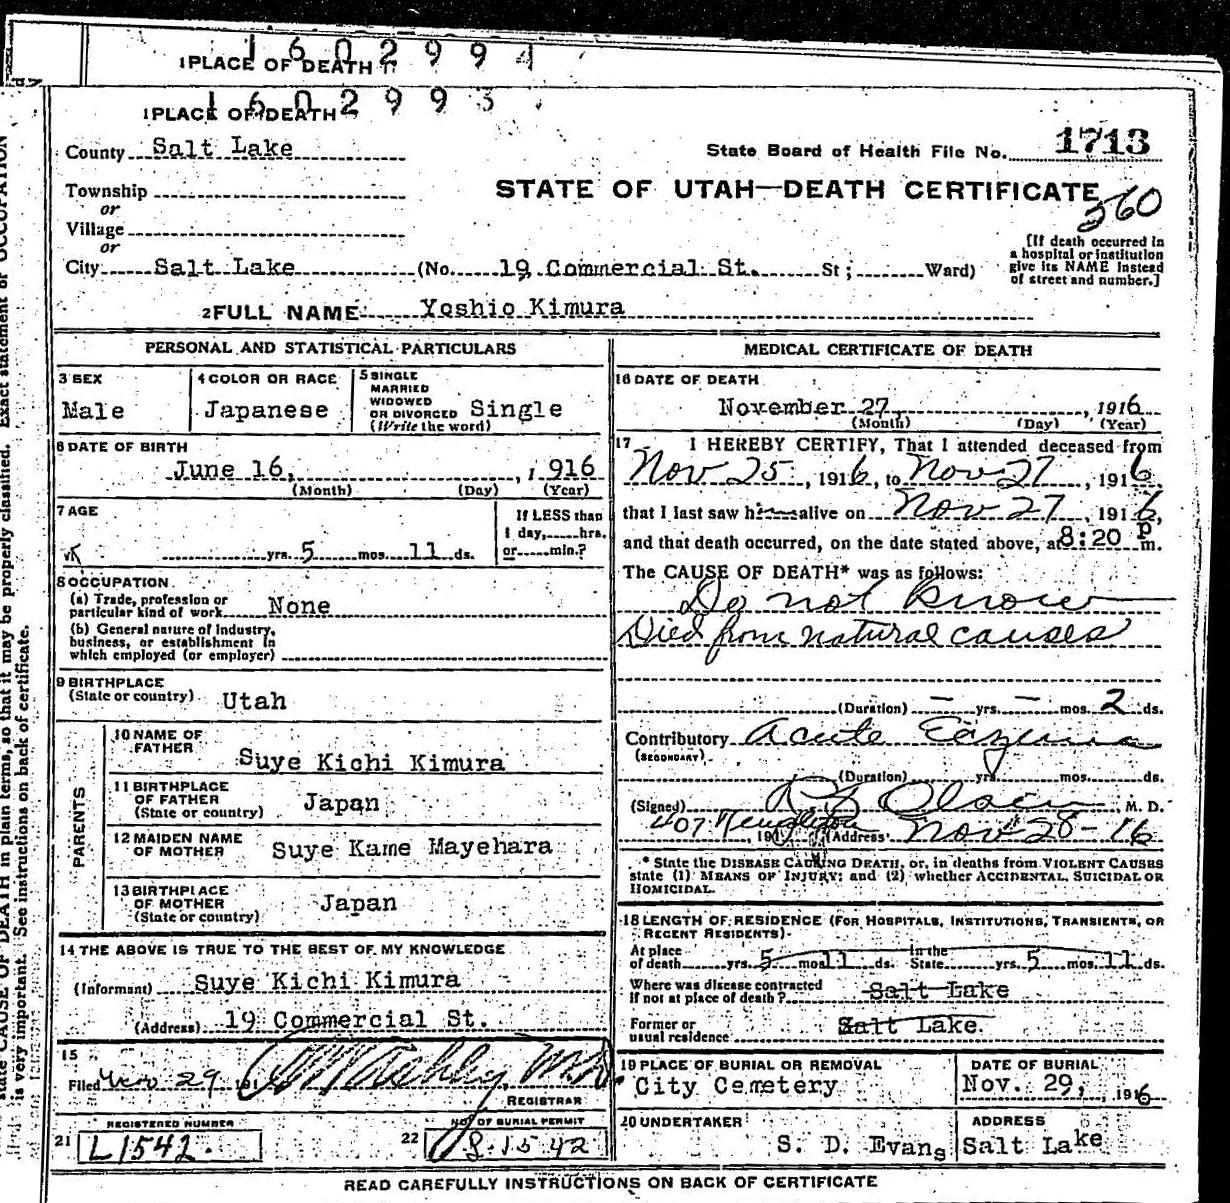 1602994
1 PLACE OF DEATH
1602993
1 PLACE OF DEATH
County Salt Lake
State Board of Health File No. 1713
Township
or
Village
or
STATE OF UTAH—DEATH CERTIFICATE
560
[If death occurred in
a hospital or institution
give its NAME instead
of street and number.]
City Salt Lake (No. 19 Commercial St. St; Ward)
2 FULL NAME Yoshio Kimura
PERSONAL AND STATISTICAL PARTICULARS
3 SEX
Male
4 COLOR OR RACE
Japanese
5 SINGLE
MARRIED
WIDOWED
OR DIVORCED Single
(Write the word)
6 DATE OF BIRTH
June 16, , 1916
(Month) (Day) (Year)
7 AGE
yrs. 5 mos. 11 ds.
If LESS than
1 day, hrs.
or min.?
8 OCCUPATION
(a) Trade, profession or
particular kind of work None
(b) General nature of industry,
business, or establishment in
which employed (or employer)
9 BIRTHPLACE
(State or country) Utah
PARENTS
10 NAME OF
FATHER
Suye Kichi Kimura
11 BIRTHPLACE
OF FATHER
(State or country) Japan
12 MAIDEN NAME
OF MOTHER Suye Kame Mayehara
13 BIRTHPLACE
OF MOTHER
(State or country) Japan
14 THE ABOVE IS TRUE TO THE BEST OF MY KNOWLEDGE
(Informant) Suye Kichi Kimura
(Address) 19 Commercial St.
15
Filed Nov 29 191 M.D.
REGISTRAR
REGISTERED NUMBER
21 L1542.
NO. OF BURIAL PERMIT
22 1542
MEDICAL CERTIFICATE OF DEATH
16 DATE OF DEATH
November 27, , 1916
(Month) (Day) (Year)
17 I HEREBY CERTIFY, That I attended deceased from
Nov 25, 1916, to Nov 27, 1916,
that I last saw him alive on Nov 27, 1916,
and that death occurred, on the date stated above, at 8:20 P m.
The CAUSE OF DEATH* was as follows:
Do not know
Died from natural causes
(Duration) — yrs. — mos. 2 ds.
Contributory Acute Eczema
(SECONDARY)
(Duration) yrs. mos. ds.
(Signed) Olsen, M. D.
407 191 (Address) Nov 28-16
* State the DISEASE CAUSING DEATH, or, in deaths from VIOLENT CAUSES
state (1) MEANS OF INJURY; and (2) whether ACCIDENTAL, SUICIDAL OR
HOMICIDAL.
18 LENGTH OF RESIDENCE (FOR HOSPITALS, INSTITUTIONS, TRANSIENTS, OR
RECENT RESIDENTS).
At place In the
of death yrs. 5 mos. 11 ds. State yrs. 5 mos. 11 ds.
Where was disease contracted
if not at place of death? Salt Lake
Former or
usual residence Salt Lake.
19 PLACE OF BURIAL OR REMOVAL
City Cemetery
DATE OF BURIAL
Nov. 29, , 1916
20 UNDERTAKER
S. D. Evans
ADDRESS
Salt Lake
READ CAREFULLY INSTRUCTIONS ON BACK OF CERTIFICATE
state CAUSE OF DEATH in plain terms, so that it may be properly classified. Exact statement of OCCUPATION
is very important. See instructions on back of certificate.